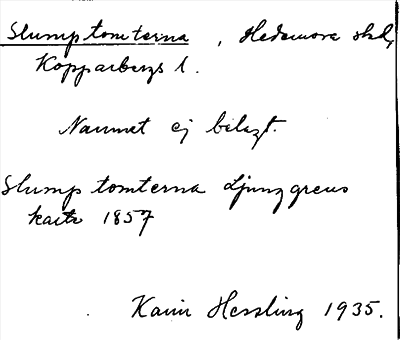 Slumptomterna, Hedemora skd,
Kopparbergs l.
Namnet ej belagt.
Slumptomterna Ljunggrens
karta 1857
Karin Hessling 1935.